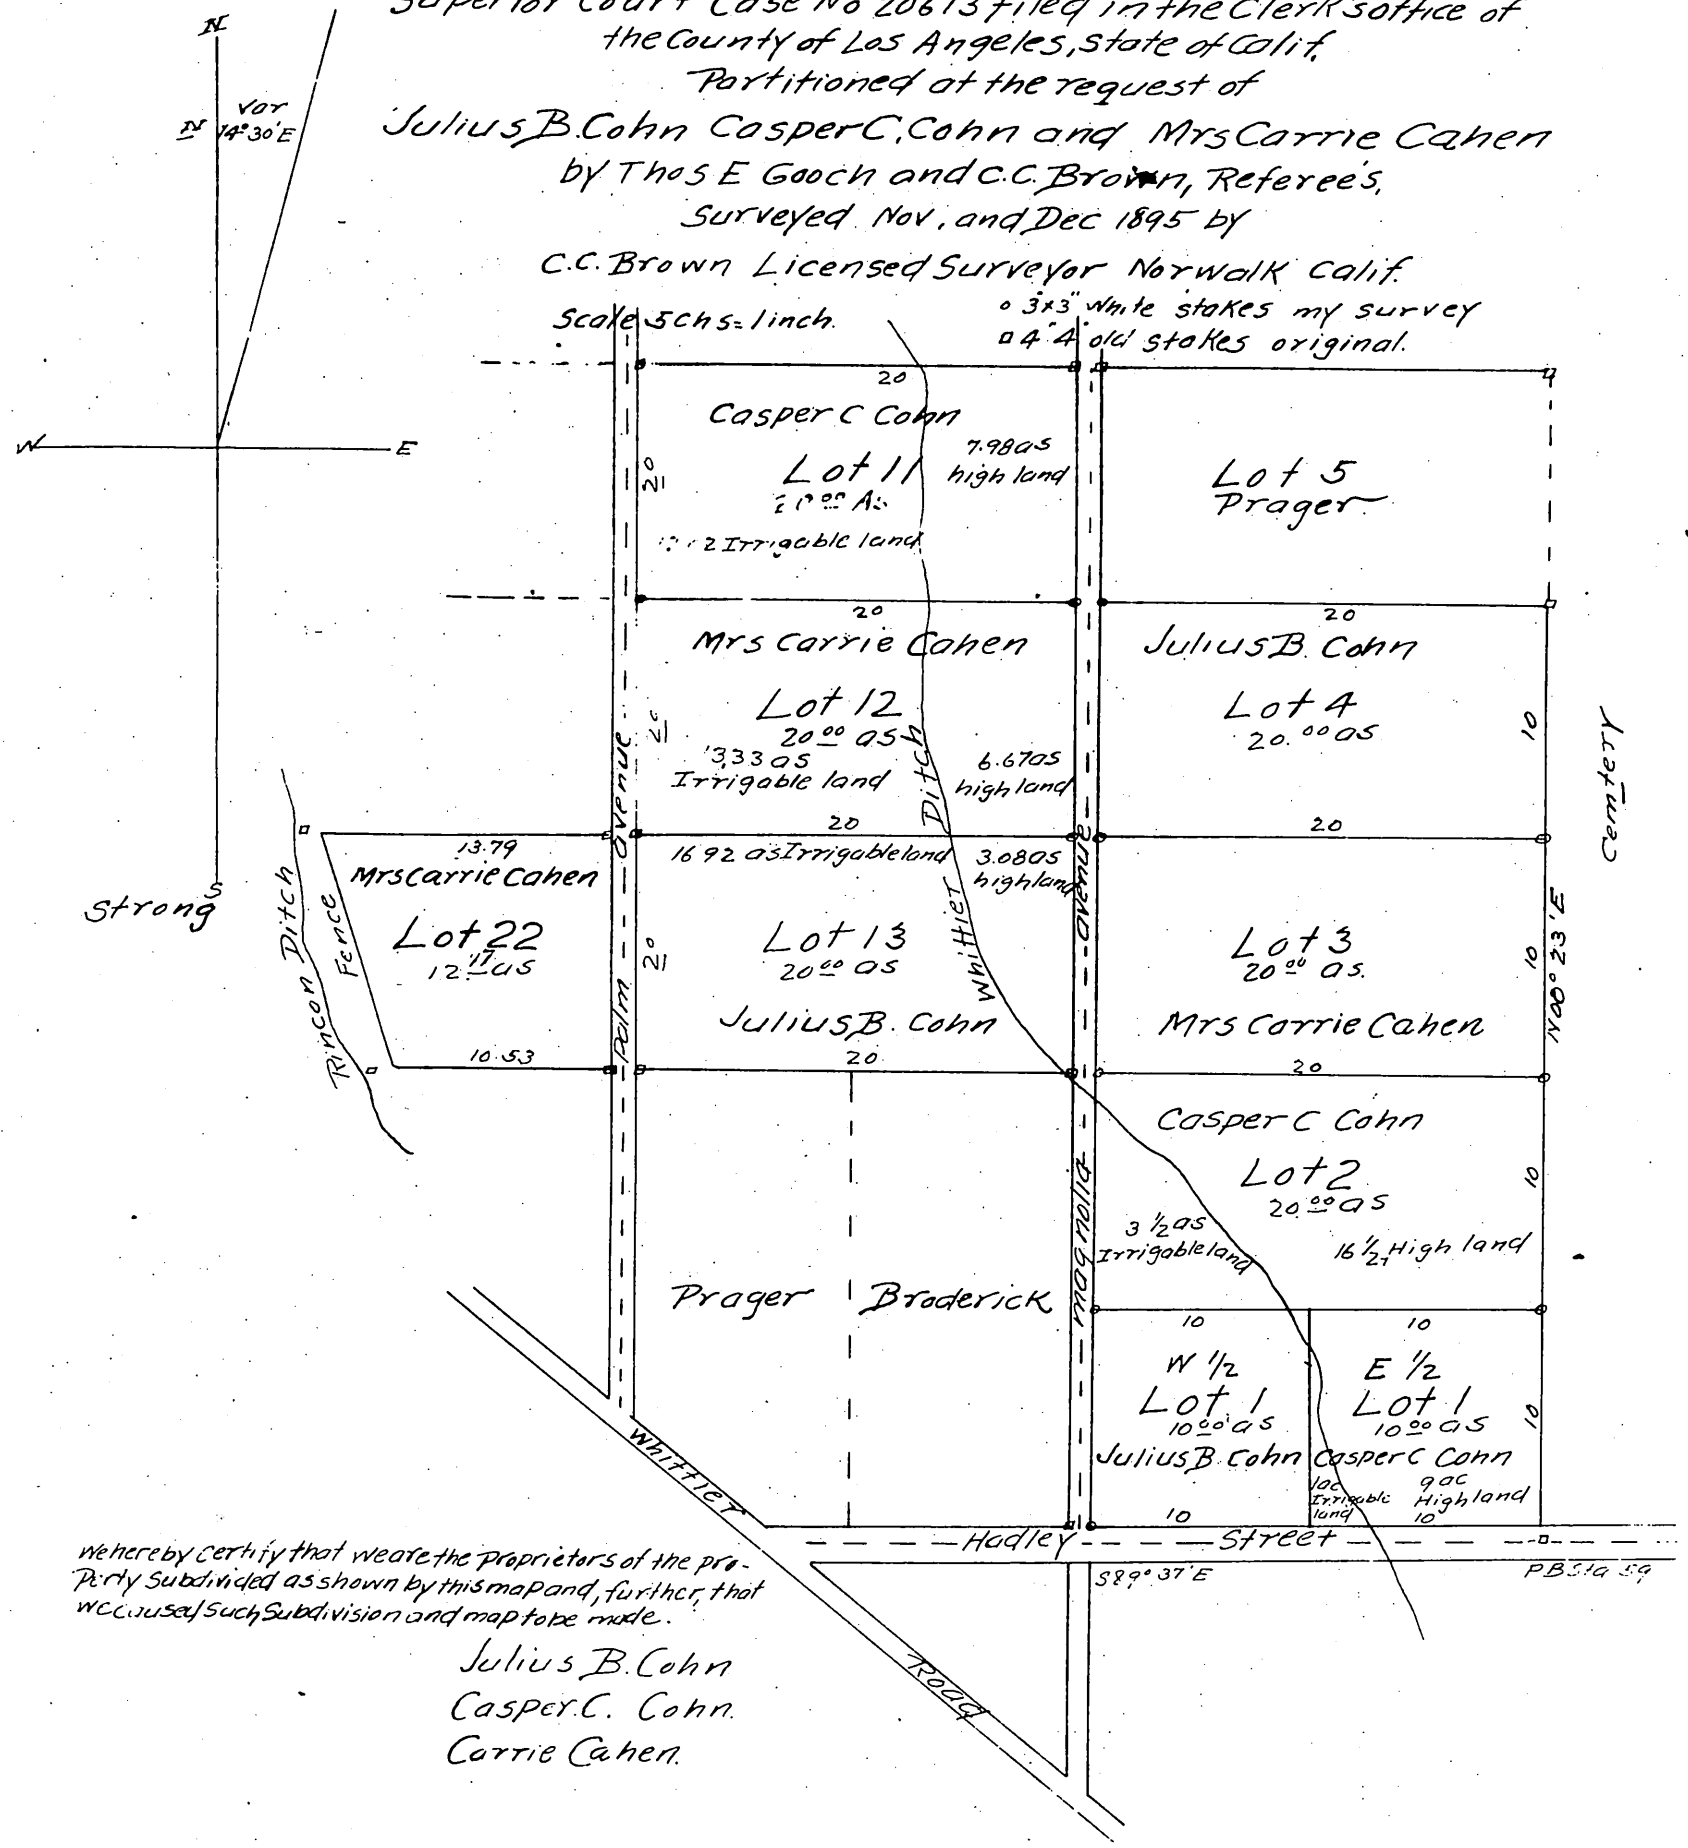 Superior Court Case No 20613 filed in the Clerk's office of
the County of Los Angeles, State of Calif.
Partitioned at the request of
Julius B. Cohn Casper C. Cohn and Mrs Carrie Cahen
by Thos E Gooch and C.C. Brown, Referee's,
Surveyed Nov. and Dec 1895 by
C.C. Brown Licensed Surveyor Norwalk Calif.
Scale 5 chs = 1 inch.
3x3" White stakes my survey
4"4" old stakes original.
N
Var
N 14° 30' E
W E
S
Strong
20
Casper C Cohn
7.98 as
high land
Lot 11
As.
Irrigable land
20
Lot 5
Prager
20
Mrs Carrie Cahen
Lot 12
20.00 as
13.33 as
Irrigable land
6.67 as
high land
20
20
20
Julius B. Cohn
Lot 4
20.00 as
10
20
Cemetery
13.79
Mrs Carrie Cahen
Lot 22
12.17 as
10.53
Rincon Ditch
Fence
Palm avenue
16 92 as Irrigable land
3.08 as
high land
Lot 13
20.00 as
20
Julius B. Cohn
20
Whittier Ditch
magnolia avenue
Lot 3
20.00 as.
Mrs Carrie Cahen
10
N00° 23' E
20
Casper C Cohn
Lot 2
20.00 as
3 1/2 as
Irrigable land
16 1/2, High land
10
Prager
Broderick
10
W 1/2
Lot 1
10.00 as
Julius B. Cohn
10
10
E 1/2
Lot 1
10.00 as
Casper C Cohn
1ac
Irrigable
land
9 ac
High land
10
10
Hadley Street
S89° 37' E
P B Sta 59
Whittier Road
We hereby certify that we are the proprietors of the pro-
perty Subdivided as shown by this map and, further, that
we caused such Subdivision and map to be made.
Julius B. Cohn
Casper. C. Cohn.
Carrie Cahen.